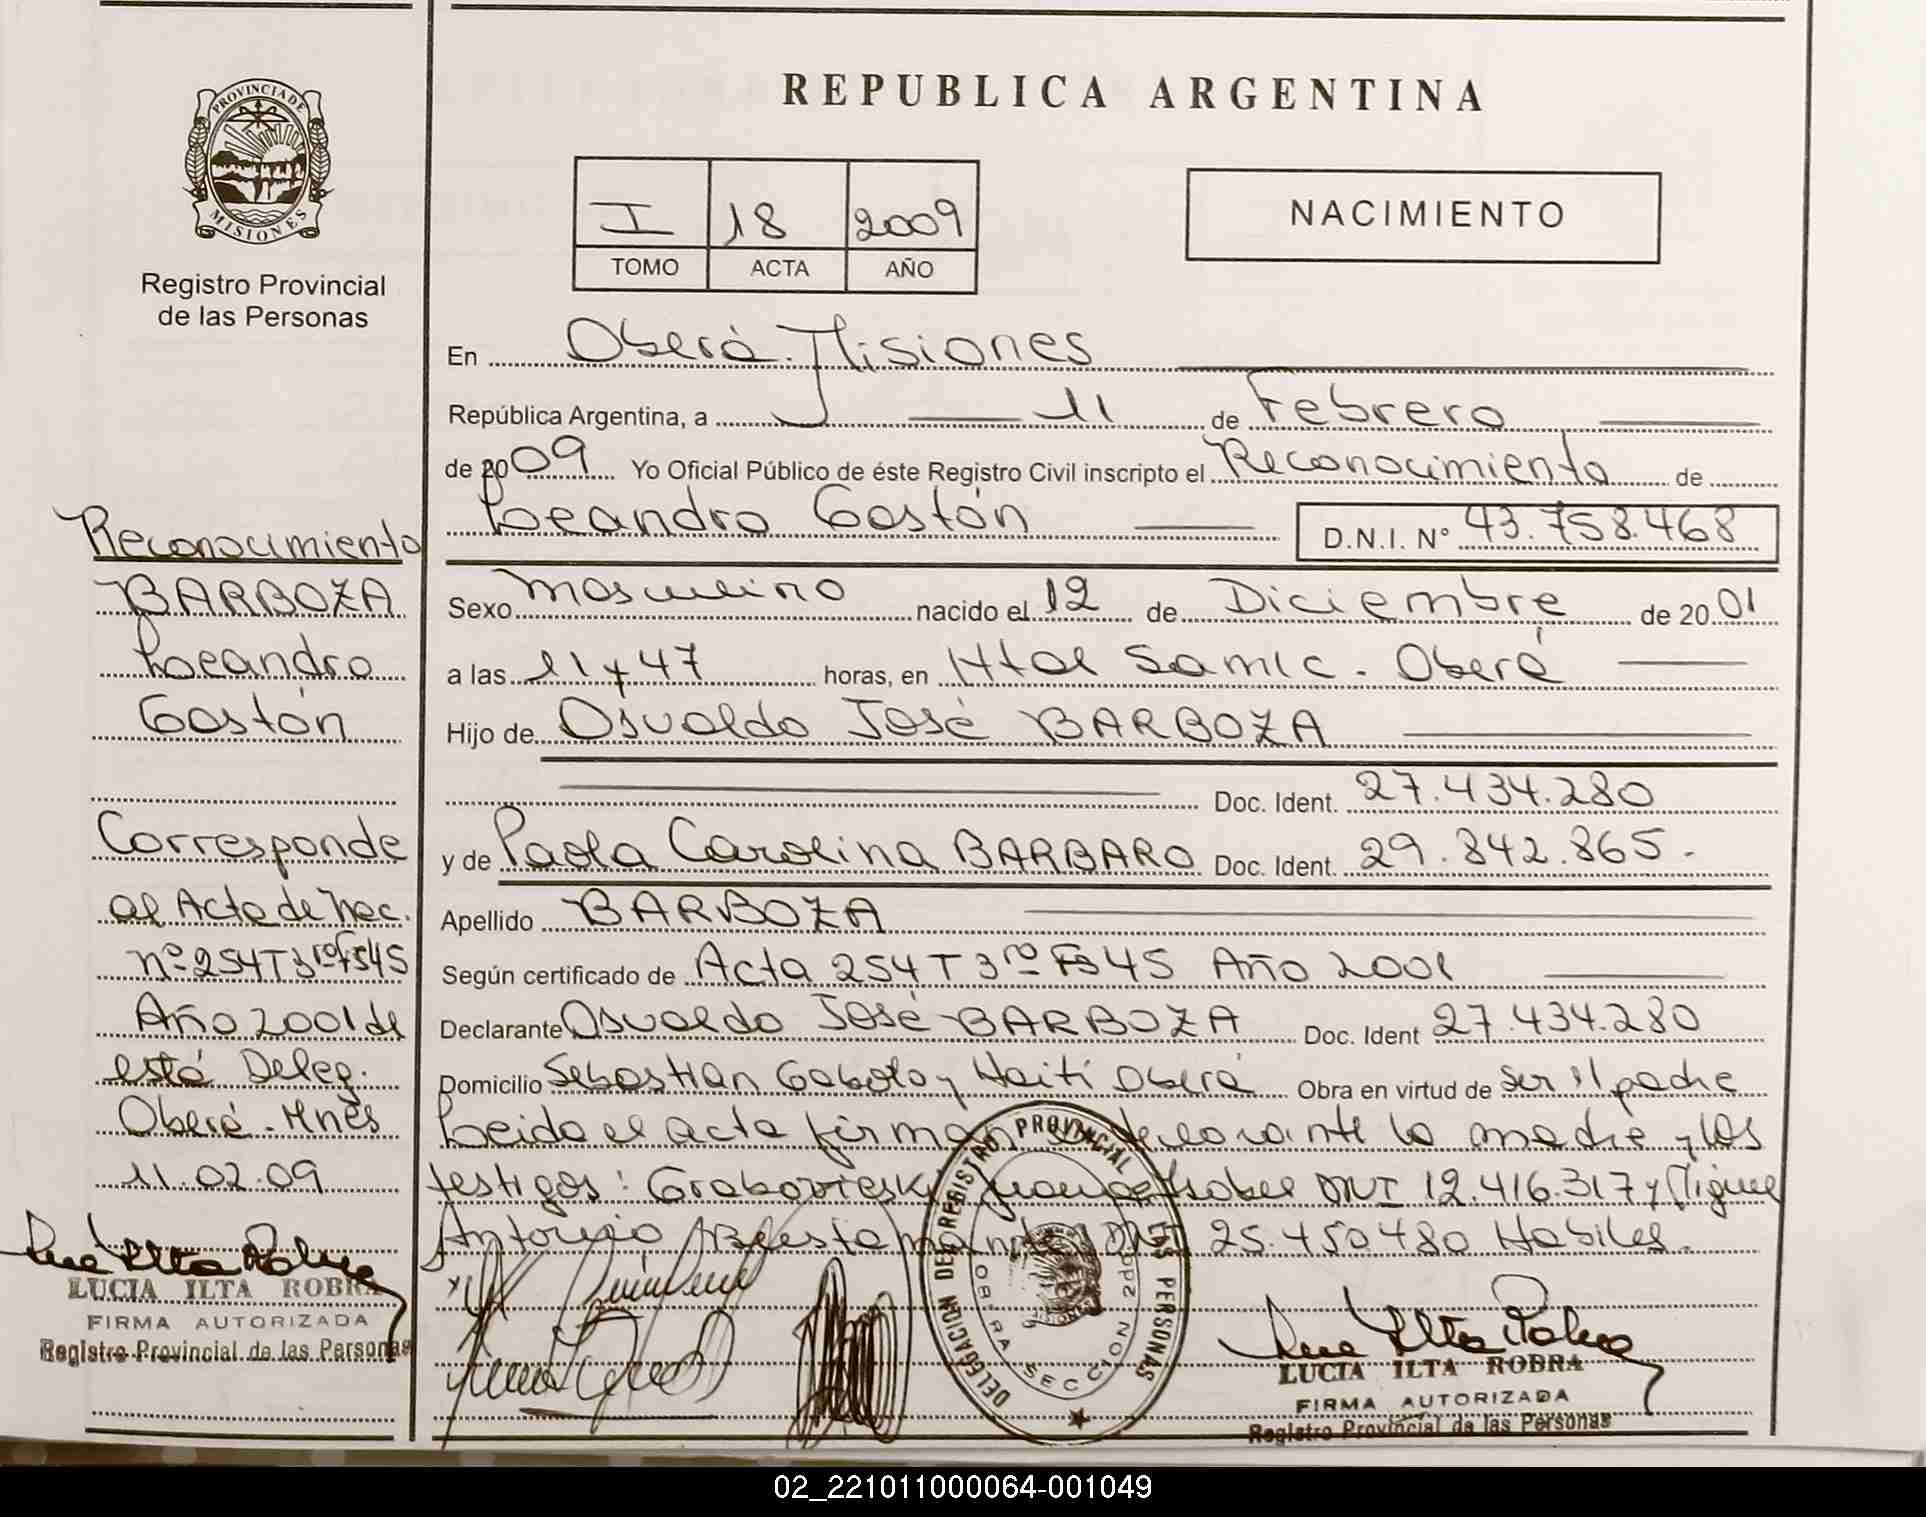 PROVINCIA DE
MISIONES
Registro Provincial
de las Personas
Reconocimiento
BARBOZA
Leandro
Gastón
Corresponde
al Acta de Nac.
Nº 254 T 3ro F 545
Año 2001 de
está Deleg.
Oberá - Mnes
11.02.09
LUCIA ILTA ROBRA
FIRMA AUTORIZADA
Registro Provincial de las Personas
REPUBLICA ARGENTINA
I 18 2009
TOMO ACTA AÑO
NACIMIENTO
En Oberá. Misiones
República Argentina, a 11 de Febrero
de 2009 Yo Oficial Público de éste Registro Civil inscripto el Reconocimiento de
Leandro Gastón D.N.I. Nº 43.758.468
Sexo Masculino nacido el 12 de Diciembre de 2001
a las 11 y 47 horas, en Htal Samic - Oberá
Hijo de Osvaldo José BARBOZA
Doc. Ident. 27.434.280
y de Paola Carolina BARBARO Doc. Ident. 29.842.865.-
Apellido BARBOZA
Según certificado de Acta 254 T 3ro Fº 545 Año 2001
Declarante Osvaldo José BARBOZA Doc. Ident 27.434.280
Domicilio Sebastian Gaboto y Haití Oberá Obra en virtud de ser el padre
Leida el acta firman el declarante la madre y los
testigos: Isabel DNI 12.416.317 y Miguel
Antonio DNI 25.450.480 Habiles.
DELEGACION DEL REGISTRO PROVINCIAL DE LAS PERSONAS
OBERA SECCION 2da
MISIONES
LUCIA ILTA ROBRA
FIRMA AUTORIZADA
Registro Provincial de las Personas
02_221011000064-001049